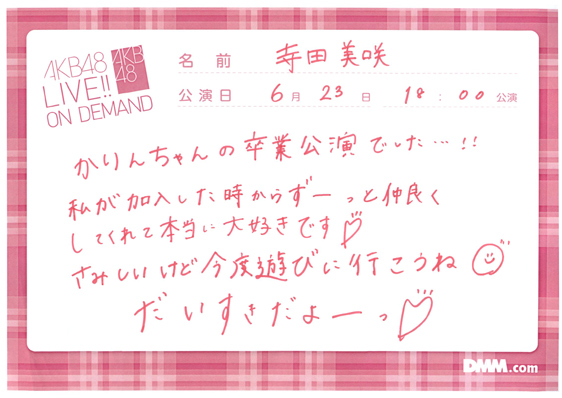 AKB48
LIVE!!
ON DEMAND
AKB
48
名前 寺田美咲
公演日 6月23日 18:00公演
かりんちゃんの卒業公演でした…!!
私が加入した時からずーっと仲良く
してくれて本当に大好きです♡
さみしいけど今度遊びに行こうね
だいすきだよーっ♡
DMM.com